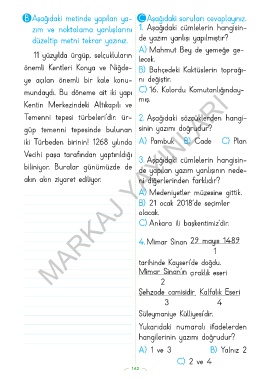 B Aşağıdaki metinde yapılan ya-
zım ve noktalama yanlışlarını
düzeltip metni tekrar yazınız.
11 yüzyılda ürgüp, selçukluların
önemli Kentleri Konya ve Niğde-
ye açılan önemli bir kale konu-
mundaydı. Bu döneme ait iki yapı
Kentin Merkezindeki Altıkapılı ve
Temenni tepesi türbeleri'dir. ür-
güp temenni tepesinde bulunan
iki Türbeden birinin! 1268 yılında
Vecihi paşa tarafından yaptırıldığı
biliniyor. Buralar günümüzde de
akın akın ziyaret ediliyor.
C Aşağıdaki soruları cevaplayınız.
1. Aşağıdaki cümlelerin hangisin-
de yazım yanlışı yapılmıştır?
A) Mahmut Bey de yemeğe ge-
lecek.
B) Bahçedeki Kaktüslerin toprağı-
nı değiştir.
C) 16. Kolordu Komutanlığınday-
mış.
2. Aşağıdaki sözcüklerden hangi-
sinin yazımı doğrudur?
A) Pambuk B) Cade C) Plan
3. Aşağıdaki cümlelerin hangisin-
de yapılan yazım yanlışının nede-
ni diğerlerinden farklıdır?
A) Medeniyetler müzesine gittik.
B) 21 ocak 2018'de seçimler
olacak.
C) Ankara ili başkentimiz'dir.
4. Mimar Sinan 29 mayıs 1489
1
tarihinde Kayseri'de doğdu.
Mimar Sinan'ın çıraklık eseri
2
Şehzade camisidir. Kalfalık Eseri
3 4
Süleymaniye Külliyesi'dir.
Yukarıdaki numaralı ifadelerden
hangilerinin yazımı doğrudur?
A) 1 ve 3 B) Yalnız 2
C) 2 ve 4
142
MARKAJ YAYINLARI